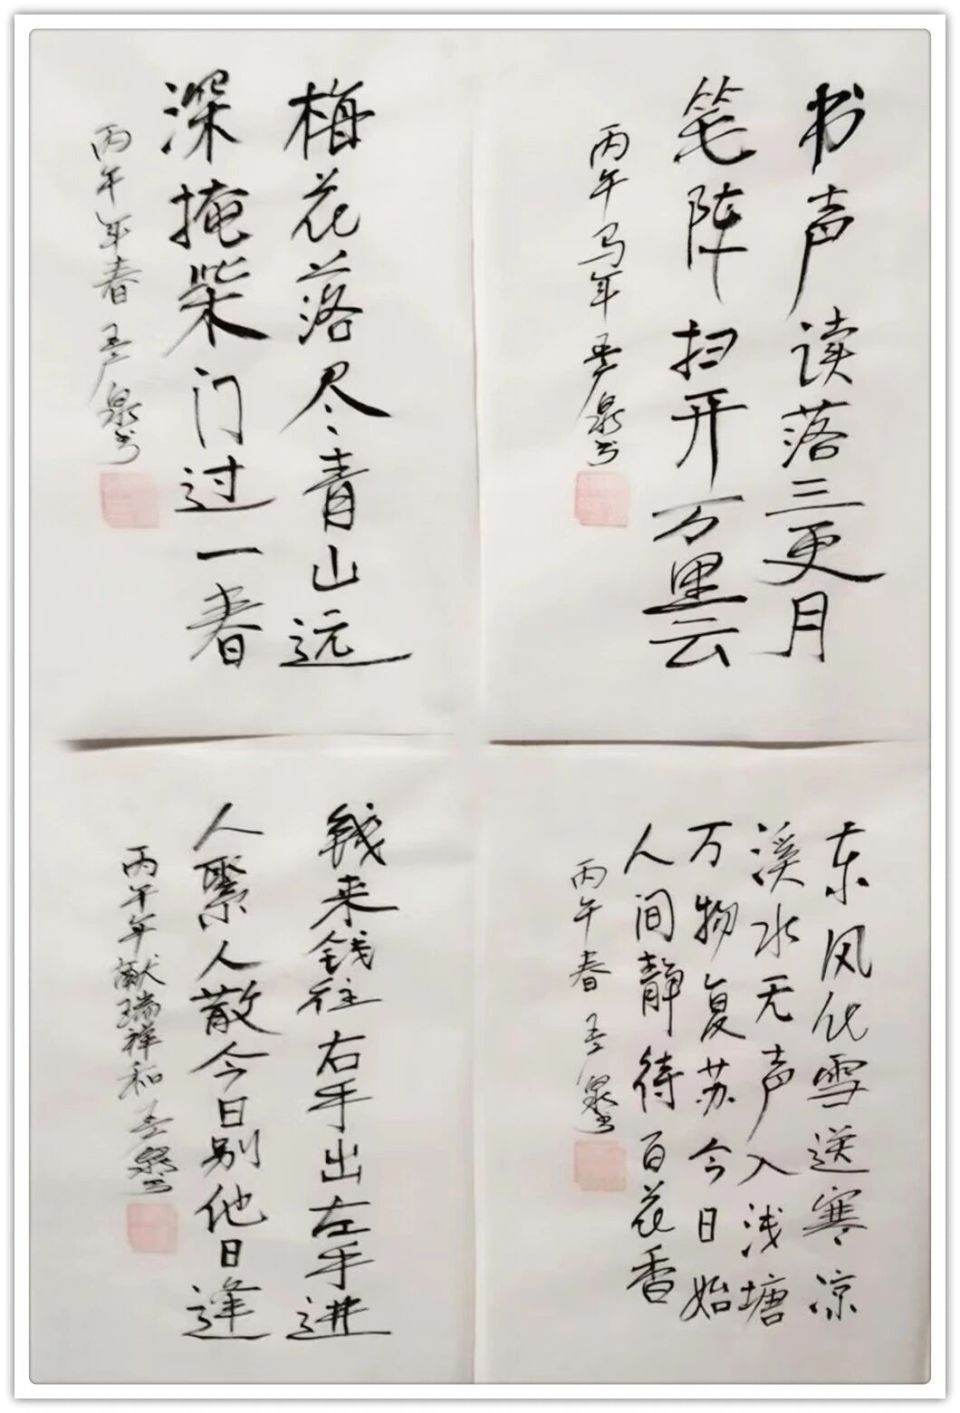 书声读落三更月
笔阵扫开万里云
丙午马年
梅花落尽青山远
深掩柴门过一春
丙午年春
东风化雪送寒凉
溪水无声入浅塘
万物复苏今日始
人间静待百花香
丙午春
钱来钱往右手出左手进
人聚人散今日别他日逢
丙午年献瑞祥和